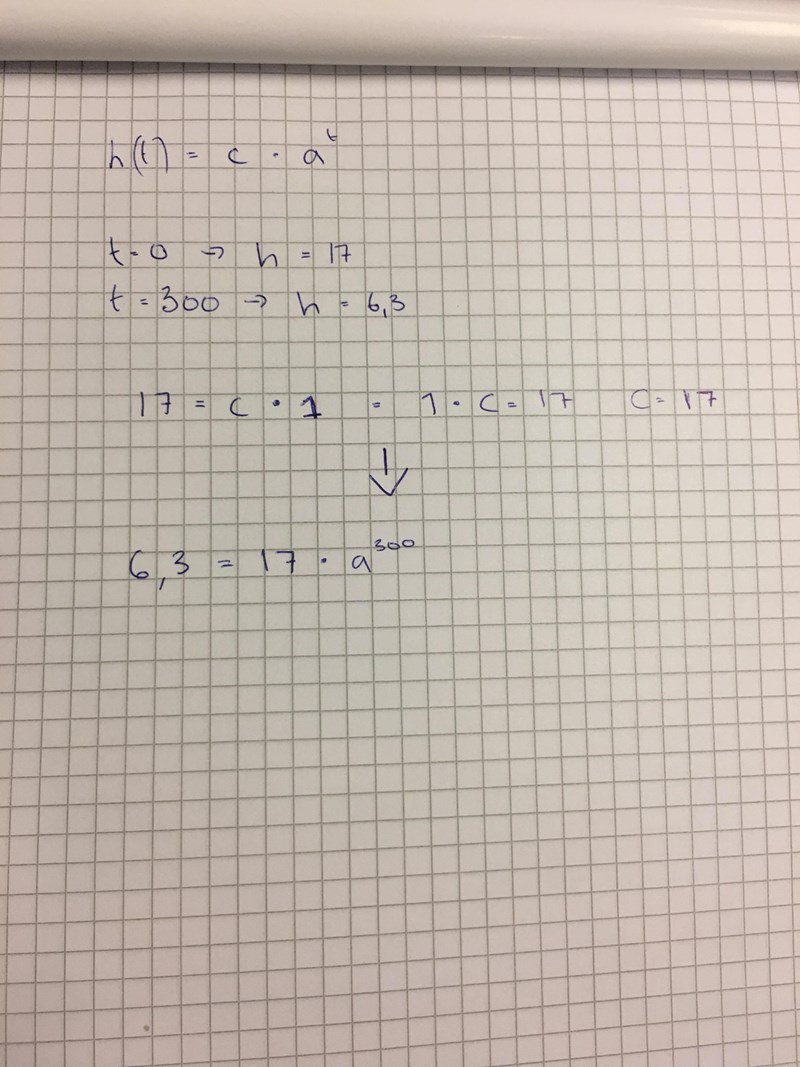 h(t) = c · a^t
t = 0 → h = 17
t = 300 → h = 6,3
17 = c · 1 = 1 · c = 17 C = 17
↓
6,3 = 17 · a^300